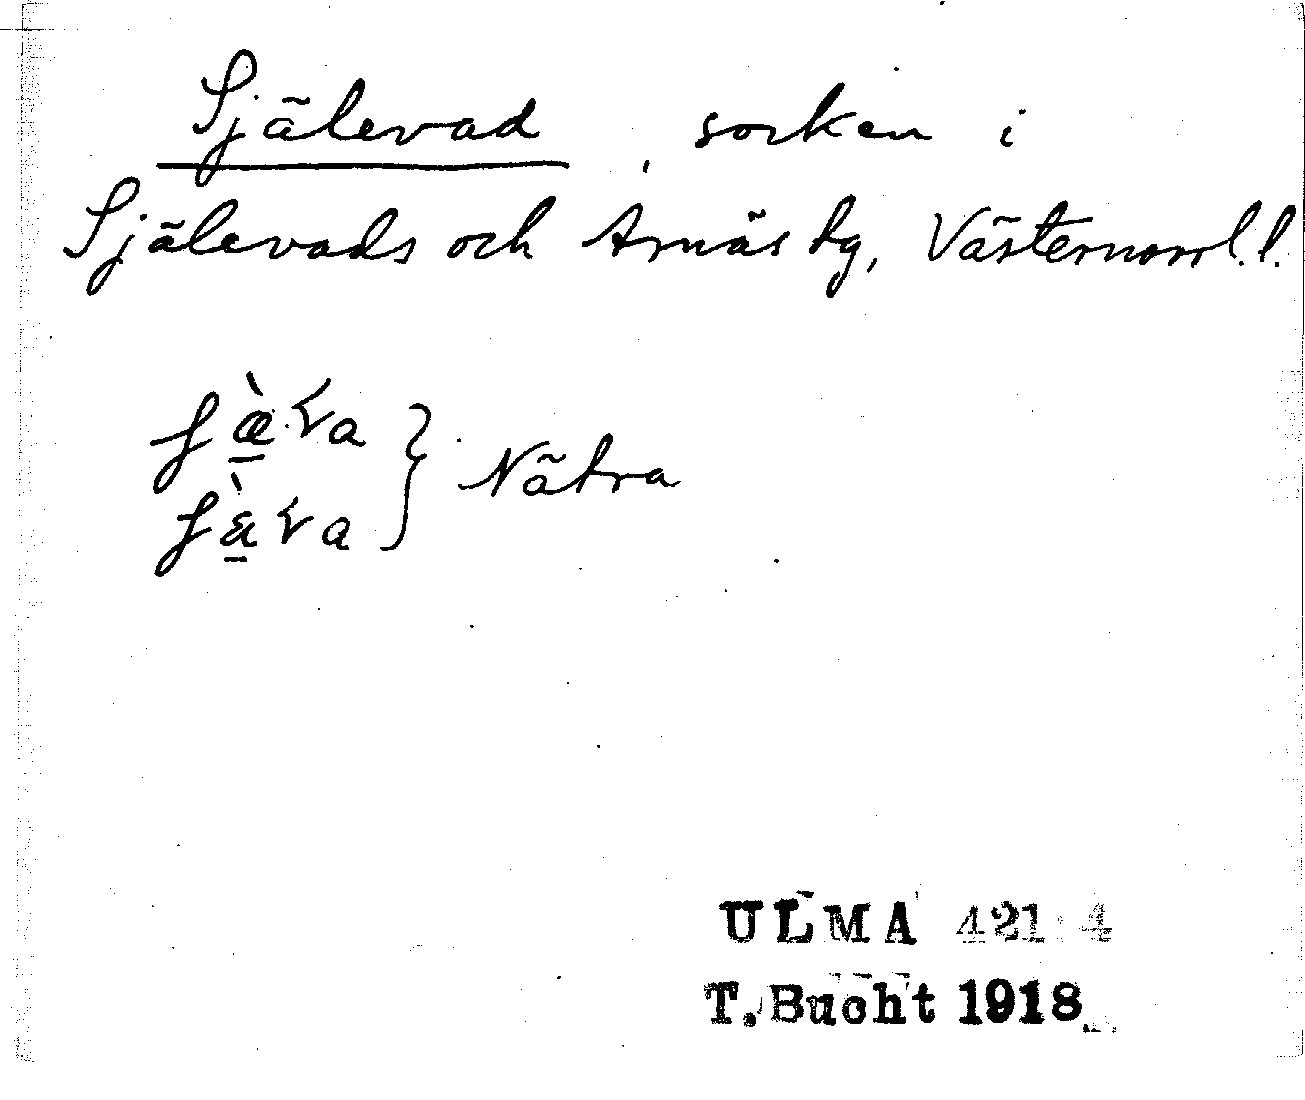 Själevad, socken i
Själevads och Arnäs tg, Västernorrl. l.
Nätra
ULMA 421:4
T. Bucht 1918